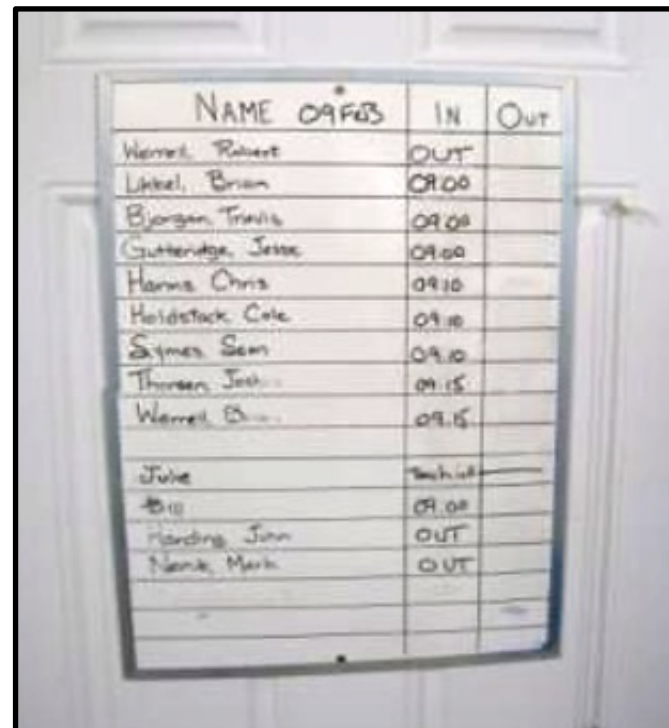 NAME 09FEB IN OUT
Werrell, Robert OUT
Likkel, Brian 09.00
Bjorgan, Travis 09.00
Gutteridge, Jesse 09.00
Harms, Chris 09.10
Holdstock, Cole 09.10
Symes, Sean 09.10
Thorsen, Josh 09.15
Werrell, 09.15
Julie
Bill 09.00
Harding, John OUT
Mark OUT